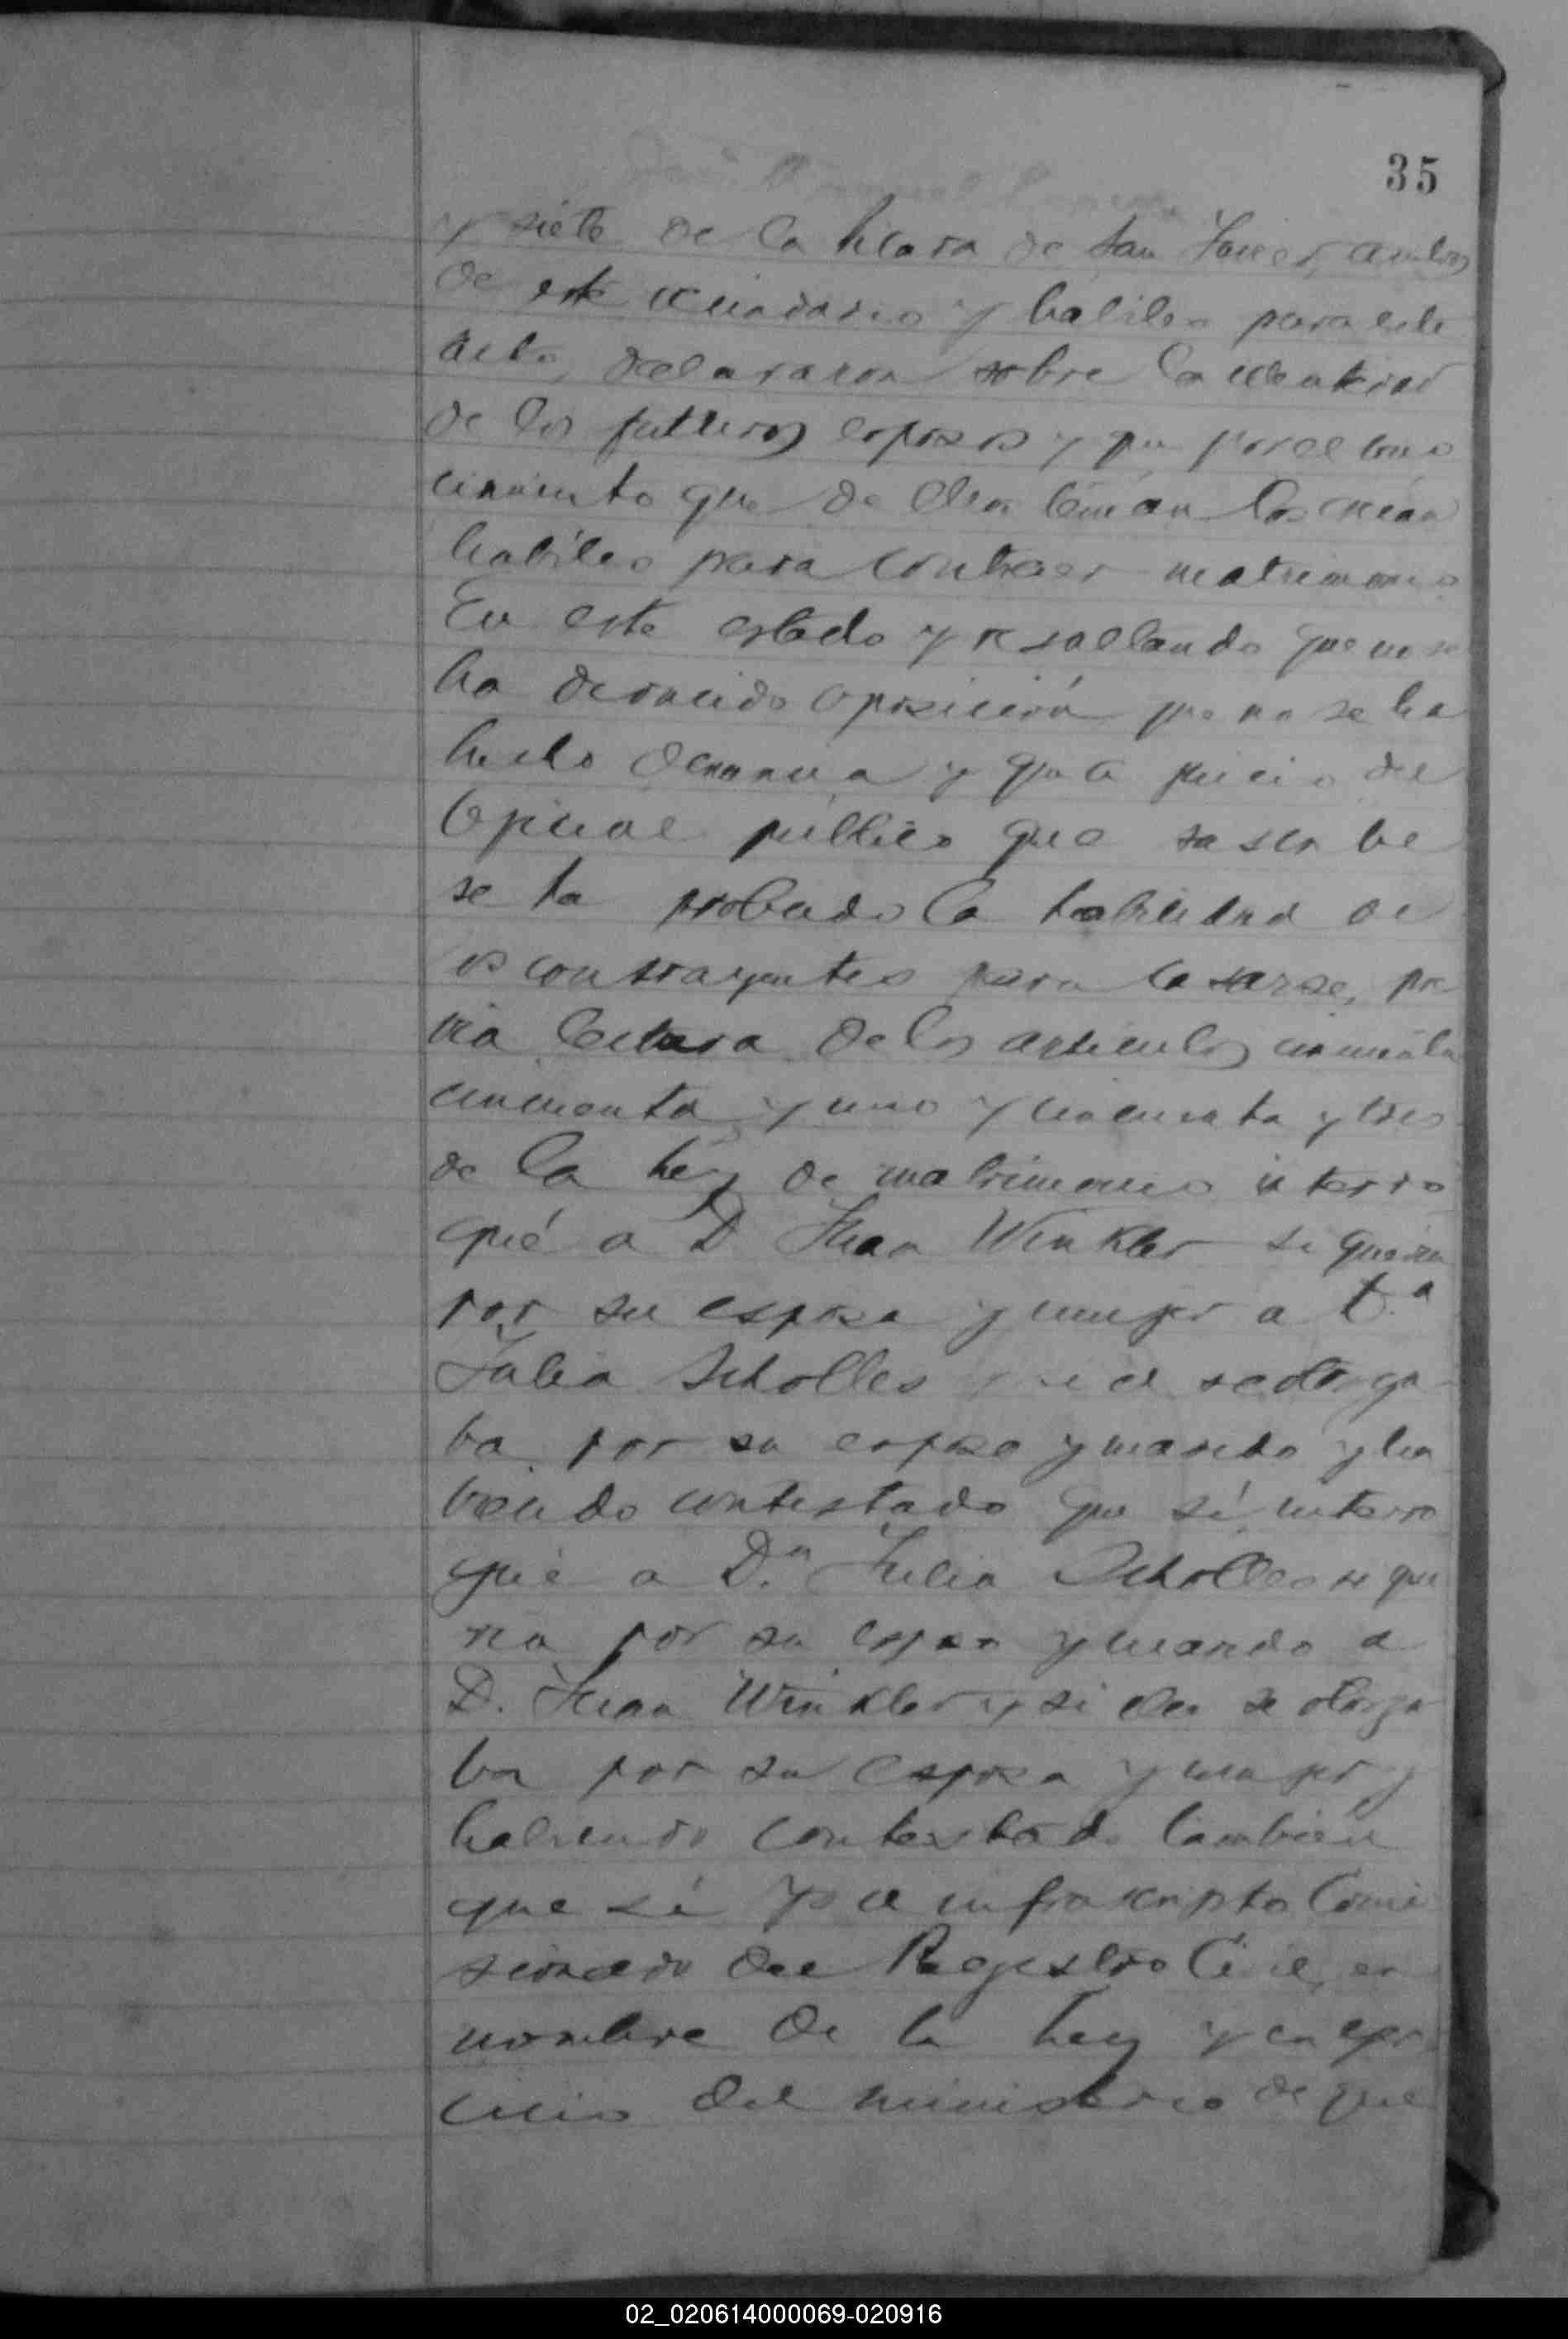 35
y siete de la Picada de San Javier, ambos
de este vecindario y habiles para este
acto, declararon sobre la identidad
de los futuros esposos y que por el cono
cimiento que de ellos tenian los creian
habiles para contraer matrimonio
En este estado y resultando que no se
ha deducido oposición que no se ha
hecho denuncia y que a juicio del
Oficial público que suscribe
se ha probado la habilidad de
os contrayentes para casarse, pre
via lectura de los articulos cincuenta
cincuenta y uno y cincuenta y tres
de la Ley de matrimonio interro
gué a D Juan Winkler si queria
por su esposa y mujer a D.a
Julia Scholles y si el se otorga
ba por su esposo y marido y ha
biendo contestado que sí, interro
gué a D.a Julia Scholles si que
ria por su esposo y marido a
D. Juan Winkler y si ella se otorga
ba por su esposa y mujer y
habiendo contestado tambien
que sí yo el infrascripto Comi
sionado del Registro Civil, en
nombre de la Ley y en ejer
cicio del ministerio de que
02_020614000069-020916